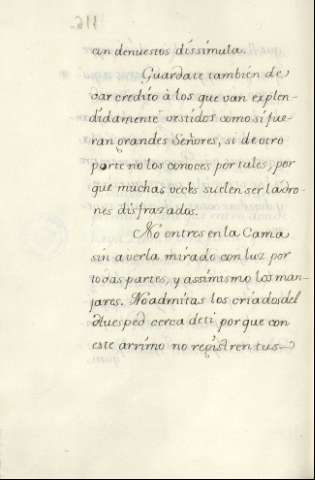 con denuestos dissimula.
Guardate tambien de
dar credito à los que van esplen-
didamente vestidos como si fue-
ran grandes Señores, si de otro
parte no los conoces por tales, por
que muchas veces suelen ser ladro-
nes disfrazados.
No entres en la Cama
sin averla mirado con luz por
todas partes, y assimismo los man-
jares. No admitas los criados del
Huesped cerca de ti porque con
este arrimo no registren tus